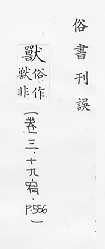 俗書刊誤
獸俗作
獣非
〔卷三·十九宥·P.556〕